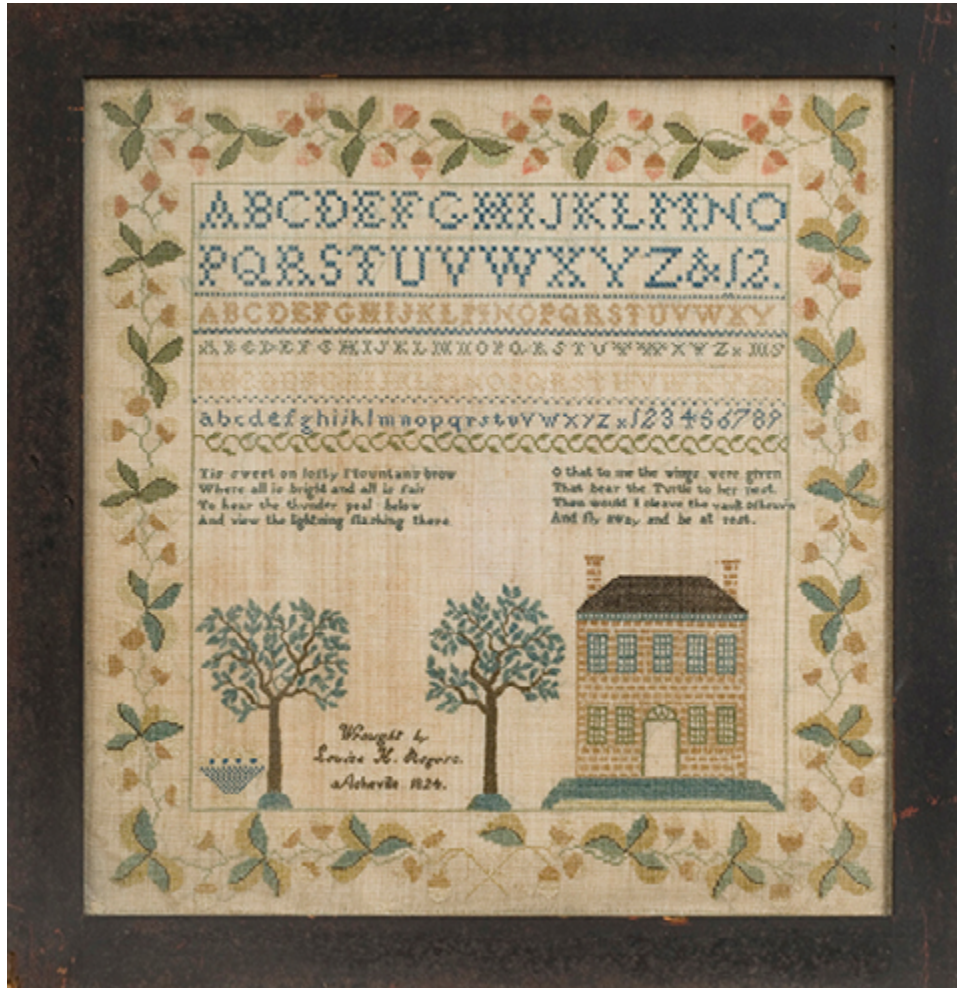 ABCDEFGHIJKLMNO
PQRSTUVWXYZ&12.
ABCDEFGHIJKLMNOPQRSTUVWXY
ABCDEFGHIJKLMNOPQRSTUVWXYZ
ABCDEFGHIJKLMNOPQRSTUVWXYZ
abcdefghijklmnopqrstuvwxyz x 123456789
Tis sweet on lofty Mountains brow
Where all is bright and all is fair
To hear the thunder peal below
And view the lightning flashing there
O that to me the wings were given
That bear the Turtle to her nest.
Then would I cleave the vault of heav'n
And fly away and be at rest.
Wrought by
Louisa H. Rogers.
Asheville 1824.